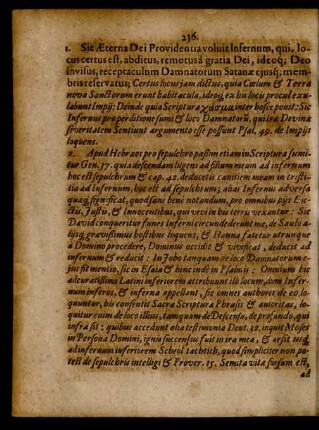 236.
1. Sic Æterna Dei Providentia voluit Infernum, qui, lo-
cus certus est, abditus, remotus à gratia Dei, ideoq; Deo
invisus, receptaculum Damnatorum Satanæ ejusq; mem-
bris reservatus; Certus locus jam dictus, quia Cœlum & Terra
nova Sanctorum erunt habitacula, ideoq; ex his locis procul exu-
labunt Impij: Deinde quia Scriptura χάσμα inter hosce ponit: Sic
Infernus pro perditione sumi & loco Damnatorũ, qui iræ Divinæ
severitatem Sentiunt argumento esse possunt Psal. 49. de Impijs
loquens.
2. Apud Hebræos pro sepulchro passim etiam in Scriptura sumi-
tur Gen. 37. quia descendam lugens ad filium meum ad infernum
hoc est sepulchrum & cap. 42. deducetis canitiem meam in tristi-
tia ad Infernum, hoc est ad sepulchrum; alias Infernus adversa
quæq; significat, quod sanè benè notandum, pro omnibus pijs Ele-
ctis, Justis, & Innocentibus, qui vexiti his terris vexantur: Sic
David conqueritur funes inferni circumdederunt me, de Saul a-
lijsq; gravissimis hostibus loquens, & Hanna fatetur utrunque
à Domino procedere, Dominus occidit & vivificat, deducit ad
infernum & reducit: In Jobo tanquam de loco Damnatorum e-
jus fit mentio, sic in Esaia & hinc inde in Psalmis: Omnium hic
accuratissimi Latini inferiorem attribuunt illi locum, dum Infer-
num inferos, & inferna appellant, sic omnes authores de eo lo-
quuntur, his consentit Sacræ Scripturæ Phrasis & autoritas, lo-
quitur enim de loco illius, tamquam de Descensu, de profundo, qui
infra sit: quibus accedunt alia testimonia Deut. 32. inquit Moses
in Persona Domini, ignis succensus fuit in ira mea, & arsit usq;
ad infernum inferiorem Scheol tachtith, quod simpliciter non po-
test de sepulchris intelligi & Prover. 15. Semita vitæ sursum est,
ad